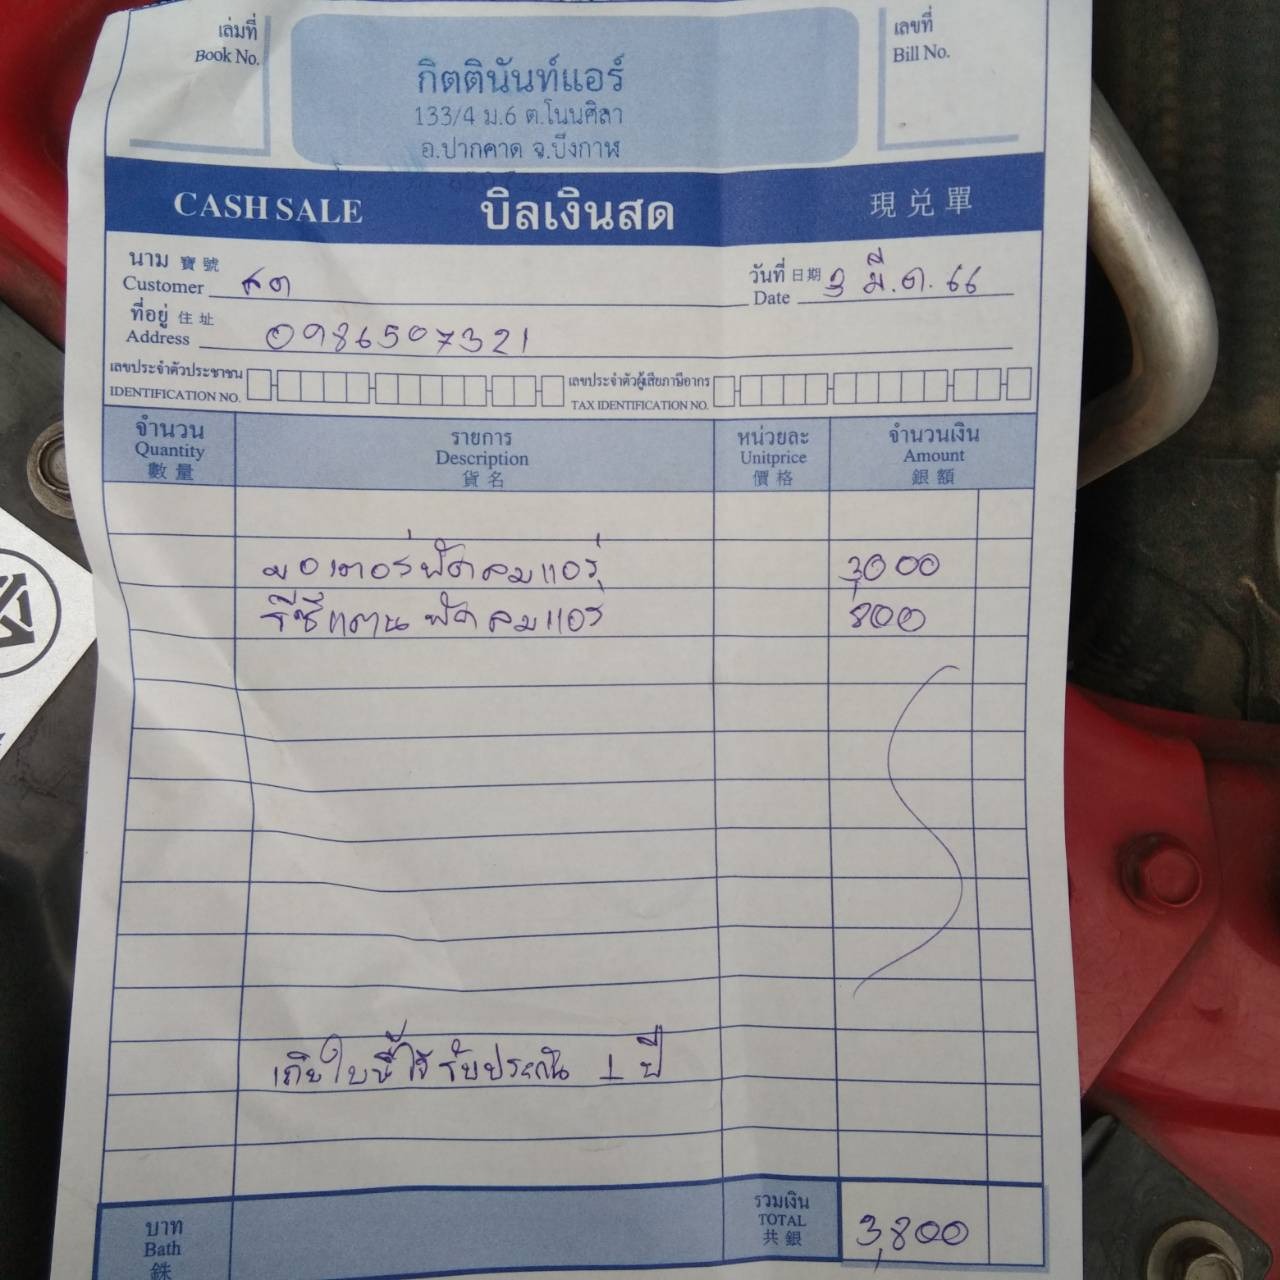 เล่มที่
Book No.
กิตตินันท์แอร์
133/4 ม.6 ต.โนนศิลา
อ.ปากคาด จ.บึงกาฬ
เลขที่
Bill No.
CASH SALE บิลเงินสด 現兑單
นาม 寶號
Customer
วันที่ 日期 3 มี.ค. 66
Date
ที่อยู่ 住址
Address 0986507321
เลขประจำตัวประชาชน
IDENTIFICATION NO.
เลขประจำตัวผู้เสียภาษีอากร
TAX IDENTIFICATION NO.
จำนวน รายการ หน่วยละ จำนวนเงิน
Quantity Description Unitprice Amount
數量 貨名 價格 銀額
มอเตอร์พัดลมแอร์ 3,000
รีซีทแตนพัดลมแอร์ 800
เก็บใบนี้ไว้ รับประกัน 1 ปี
บาท
Bath
銖
รวมเงิน
TOTAL
共銀
3,800